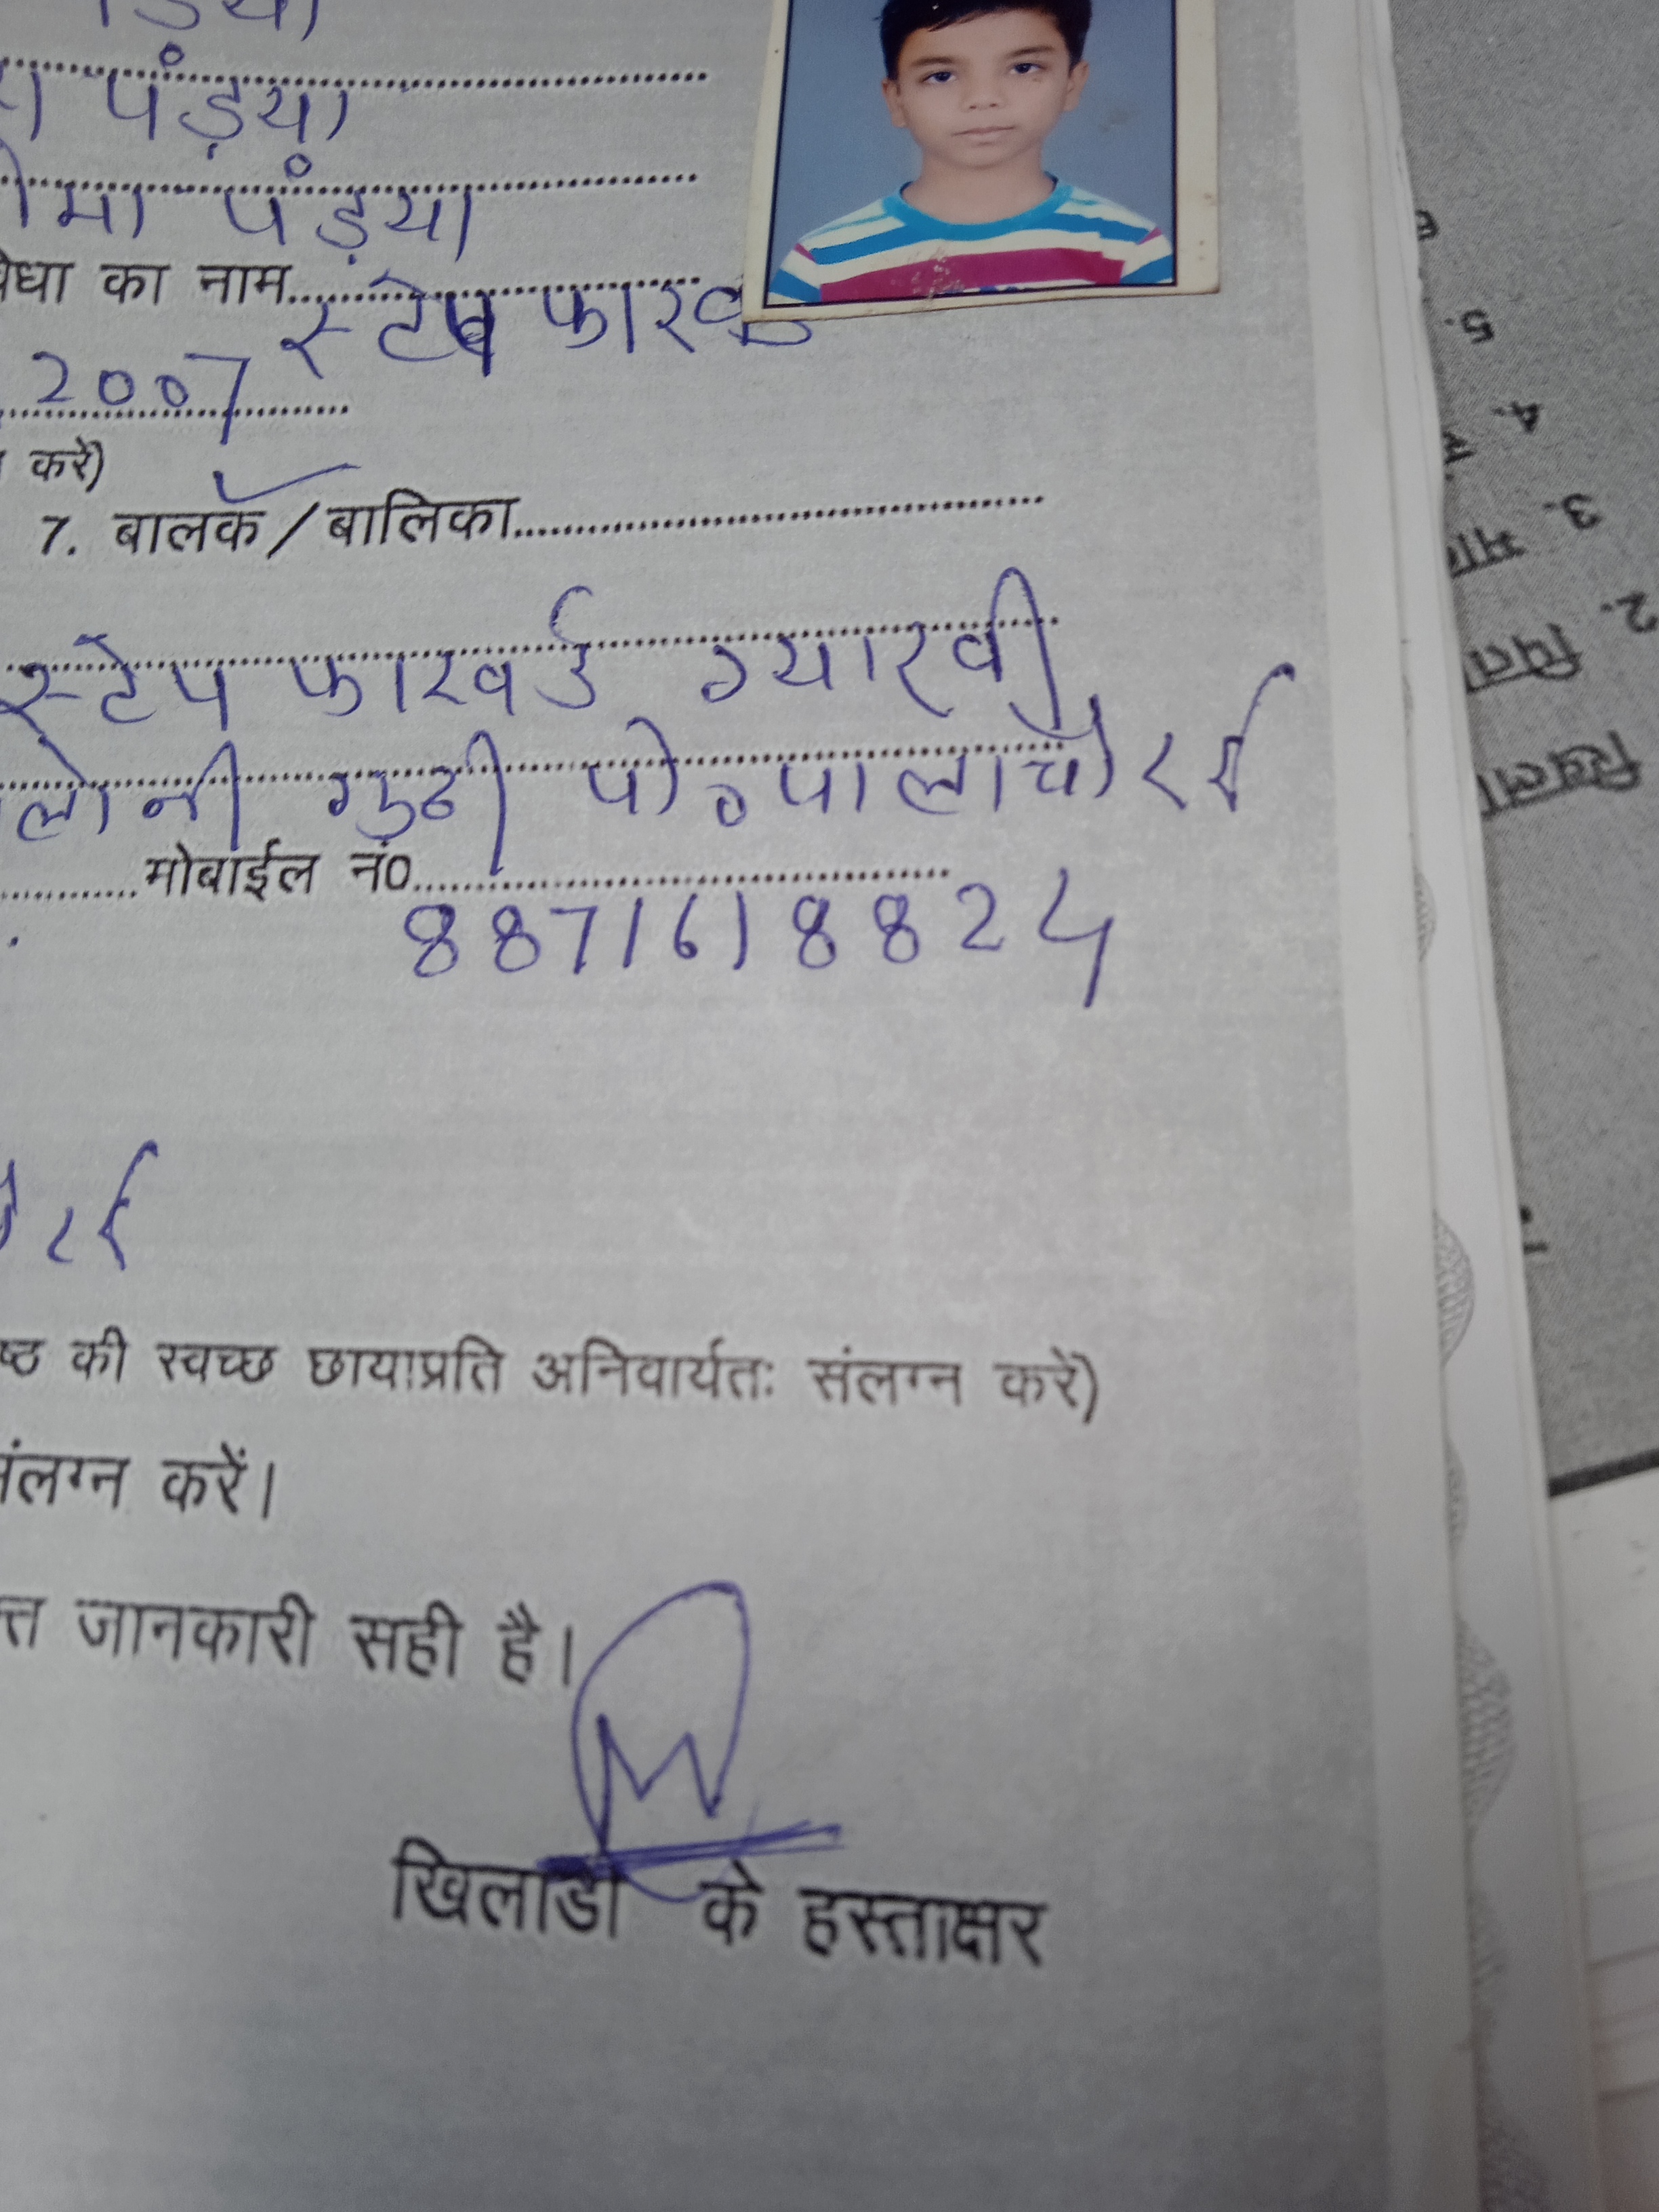 पंड़या
पंड़या
का नाम
स्टेप फारवर्ड
2007
करें)
7. बालक / बालिका
स्टेप फारवर्ड ग्यारवी
गुढी पो० पालाचौरई
मोबाईल नं०
8871618824
रई
की स्वच्छ छायाप्रति अनिवार्यतः संलग्न करें)
संलग्न करें।
जानकारी सही है।
खिलाडी के हस्ताक्षर
5.
4.
3.
2.